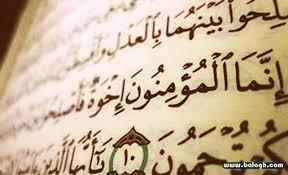 لِحُوا۟ بَيْنَهُمَا بِٱلْعَدْلِ
إِنَّمَا ٱلْمُؤْمِنُونَ إِخْوَةٌ فَأَصْلِحُ
كُمْ تُرْحَمُونَ ١٠ يَٰٓأَيُّهَا ٱلَّذِينَ
www.balagh.com